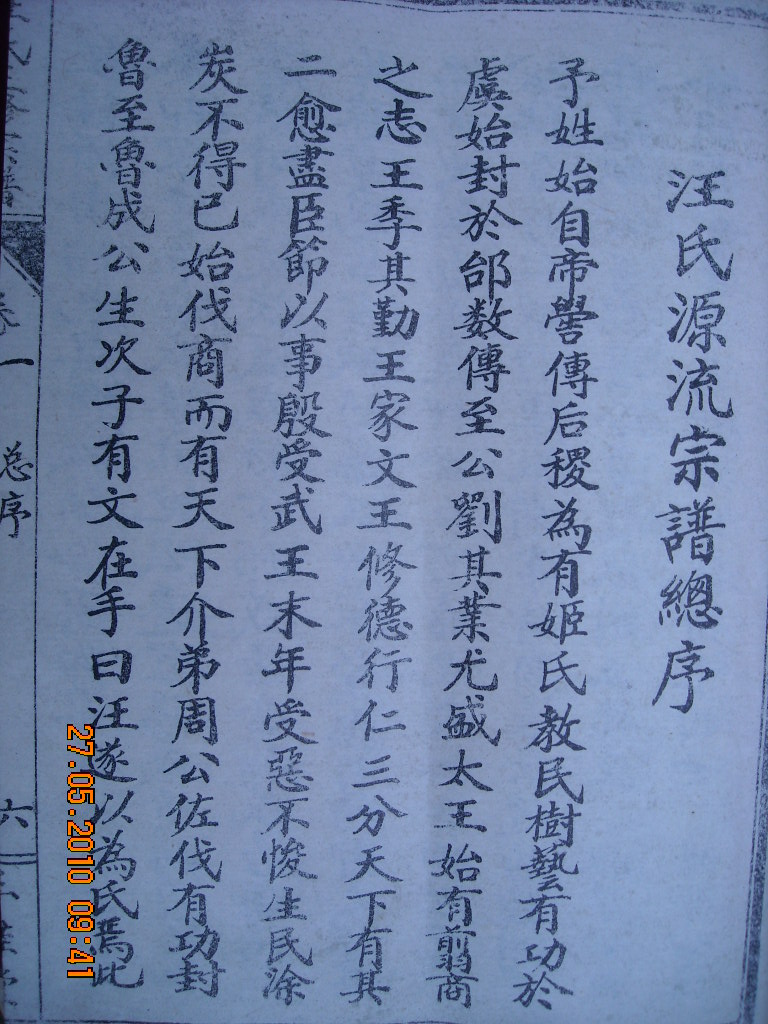 汪氏源流宗譜總序
予姓始自帝嚳傳后稷為有姬氏教民樹藝有功於
虞始封於邰数傳至公劉其業尤盛太王始有翦商
之志王季其勤王家文王修德行仁三分天下有其
二愈盡臣節以事殷受武王末年受惡不悛生民凃
炭不得已始伐商而有天下介弟周公佐伐有功封
魯至魯成公生次子有文在手曰汪遂以為氏焉此
卷一
总序
六
27.05.2010 09:41